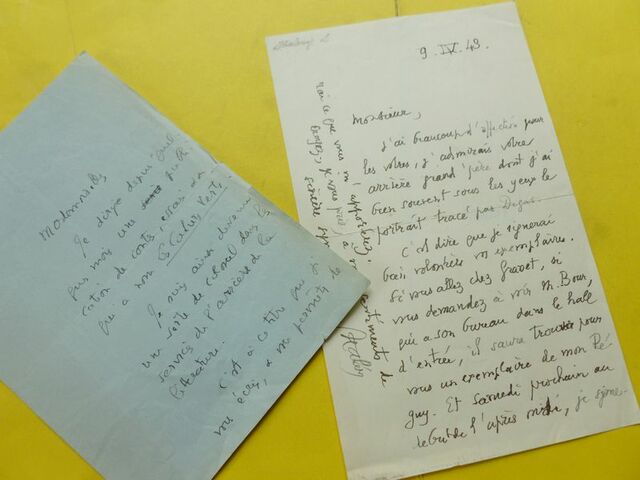 Mademoiselle
Je dirige depuis quel-
ques mois une
cation de contes, essais
qui a nom
Je suis ainsi devenu
une sorte de colonel dans les
services de l'arrière de la
littérature.
C'est à ce titre que je
vous écris, & me permets de
9. IV. 43.
Monsieur,
J'ai beaucoup d'affection pour
les vôtres, j'admirais votre
arrière grand'père dont j'ai
bien souvent sous les yeux le
portrait tracé par Degas.
C'est dire que je signerai
bien volontiers vos exemplaires.
Si vous allez chez Grasset, si
vous demandez à voir M. Bour,
qui a son bureau dans le hall
d'entrée, il saura trouver pour
vous un exemplaire de mon Pé
guy. Et samedi prochain au
début de l'après midi, je
rai ce que vous m'apporterez.
je vous prie, à
sentiments de
sincère